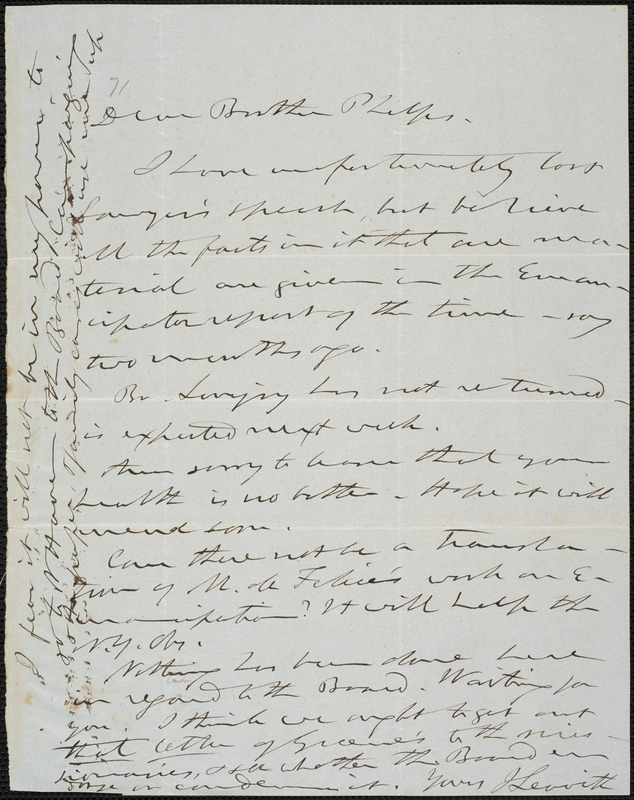 71
Dear Brother Phelps.
I have unfortunately lost
Sawyer's speech, but believe
all the facts in it that are ma-
terial are given in the Eman-
cipator report of the time - say
two months ago.
Br. Lovejoy has not returned -
is expected next week.
Am sorry to learn that your
health is no better - Hope it will
mend soon.
Can there not be a transla-
tion of M. de Felice's work on E-
mancipation? It will help the
N.Y. Obs.
Nothing has been done here
in regard to the Board. Waiting for
you. I think we ought to get out
that letter of Greene's to the mis-
sionaries, & see whether the Board en-
dorse or condemn it. Yours J Leavitt
I fear it will not be in my power to
go to N Haven to the Board. Campaign
paper &